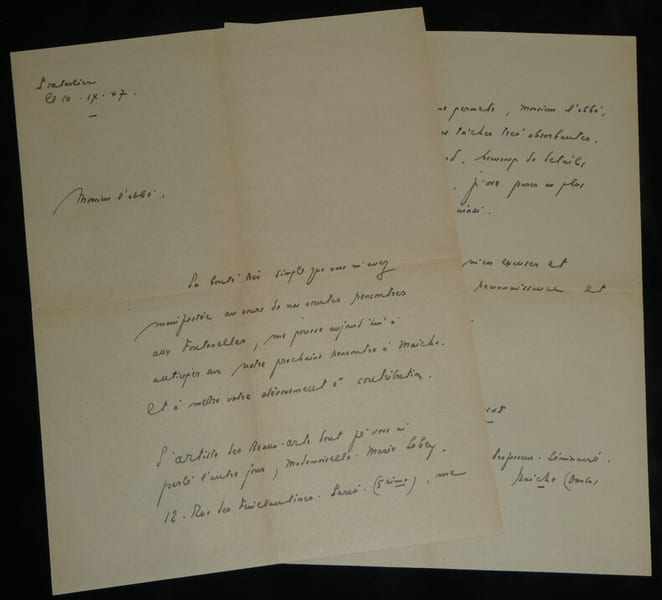 Pontarlier
le 10 . IX . 47.
Monsieur l'abbé,
La bonté très simple que vous m'avez
manifestée au cours de nos courtes rencontres
aux Fontenelles, me pousse aujourd'hui à
anticiper sur notre prochaine rencontre à Maîche.
Et à mettre votre dévouement à contribution.
L'artiste des Beaux-arts dont je vous ai
parlé l'autre jour, Mademoiselle Marie
12. Rue des Feuillantines. Paris. (5eime), me
permets, Monsieur l'abbé,
tâches très absorbantes.
beaucoup de détails
, j'ose penser au plus
ainsi.
m'en excuser et
reconnaissance et
Professeur. Séminaire.
Maîche (Doubs)